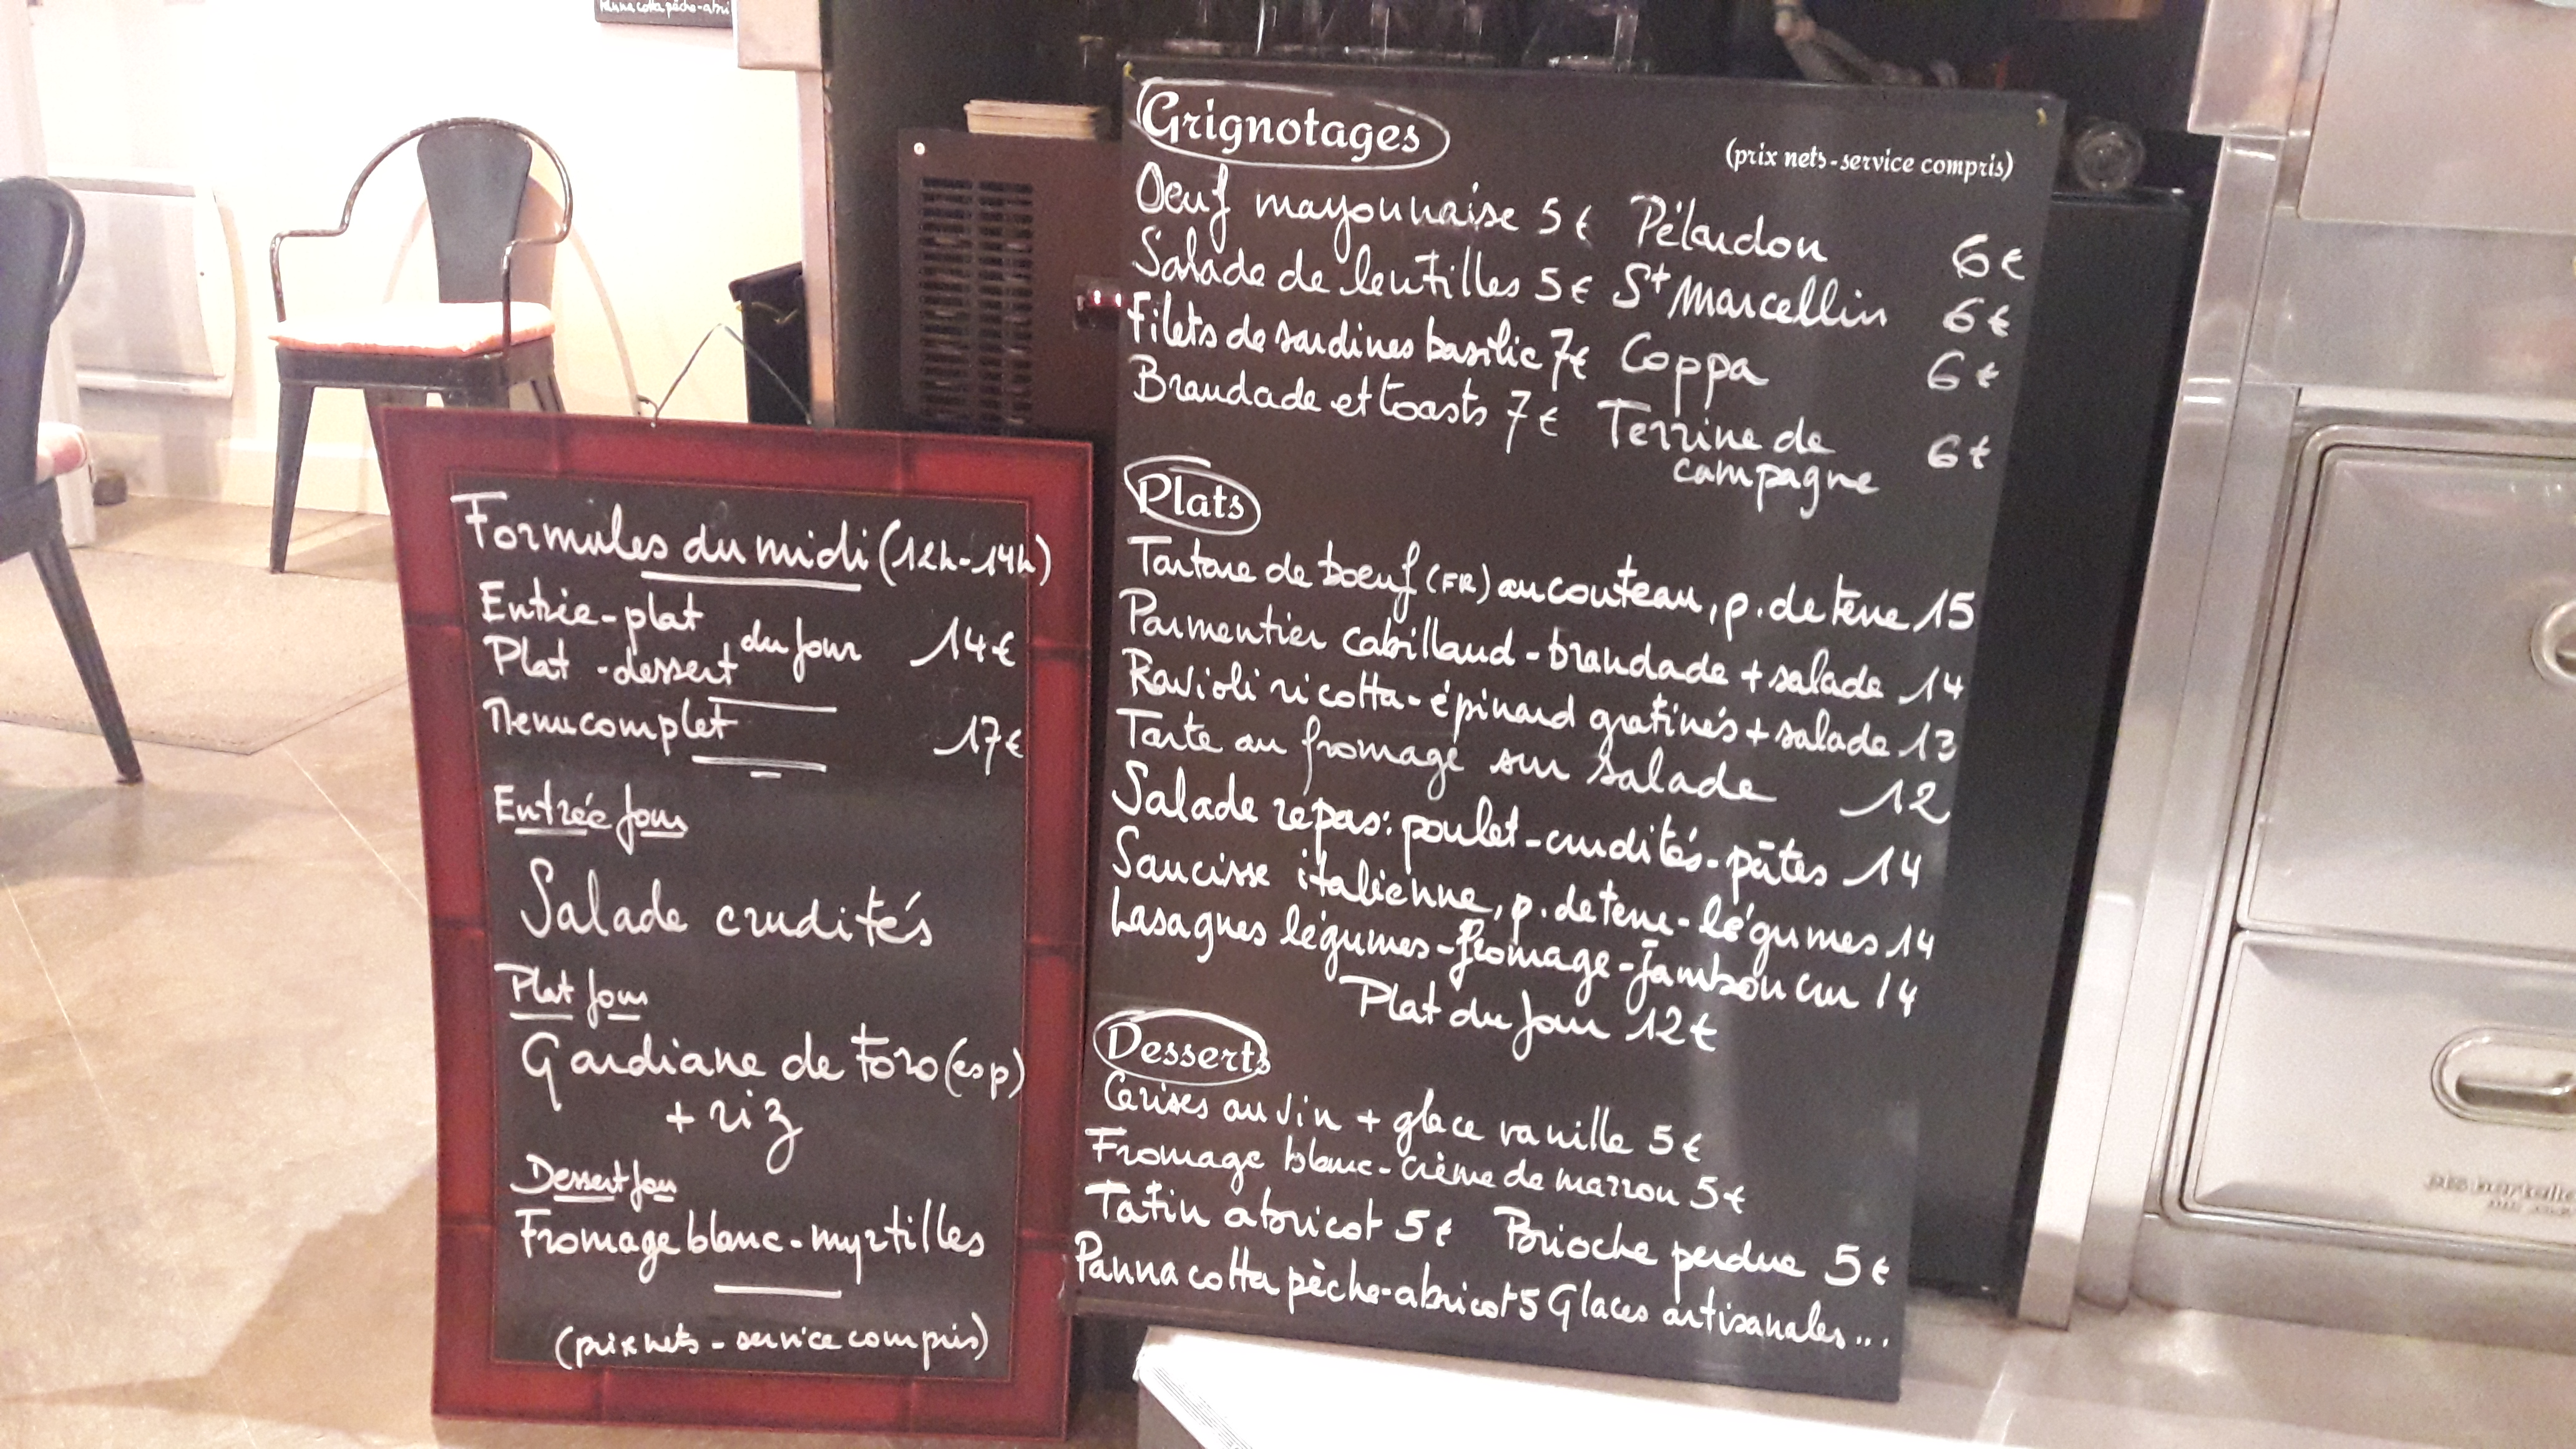 Panna cotta pêche-abri
Formules du midi (12h-14h)
Entrée-plat
du jour 14€
Plat -dessert
Menu complet 17€
Entrée jour
Salade crudités
Plat jour
Gardiane de toro (esp)
+ riz
Dessert jour
Fromage blanc-myrtilles
(prix nets - service compris)
Grignotages
(prix nets-service compris)
Oeuf mayonnaise 5€ Pélardon 6€
Salade de lentilles 5€ St Marcellin 6€
Filets de sardines basilic 7€ Coppa 6€
Brandade et toasts 7€ Terrine de 6€
campagne
Plats
Tartare de boeuf (FR) au couteau, p. de terre 15
Parmentier cabillaud-brandade + salade 14
Ravioli ricotta-épinard gratinés + salade 13
Tarte au fromage sur salade 12
Salade repas: poulet-crudités-pâtes 14
Saucisse italienne, p. de terre-légumes 14
Lasagnes légumes-fromage-jambon cru 14
Plat du jour 12€
Desserts
Cerises au vin + glace vanille 5€
Fromage blanc-crème de marron 5€
Tatin abricot 5€ Brioche perdue 5€
Panna cotta pêche-abricot 5 Glaces artisanales...